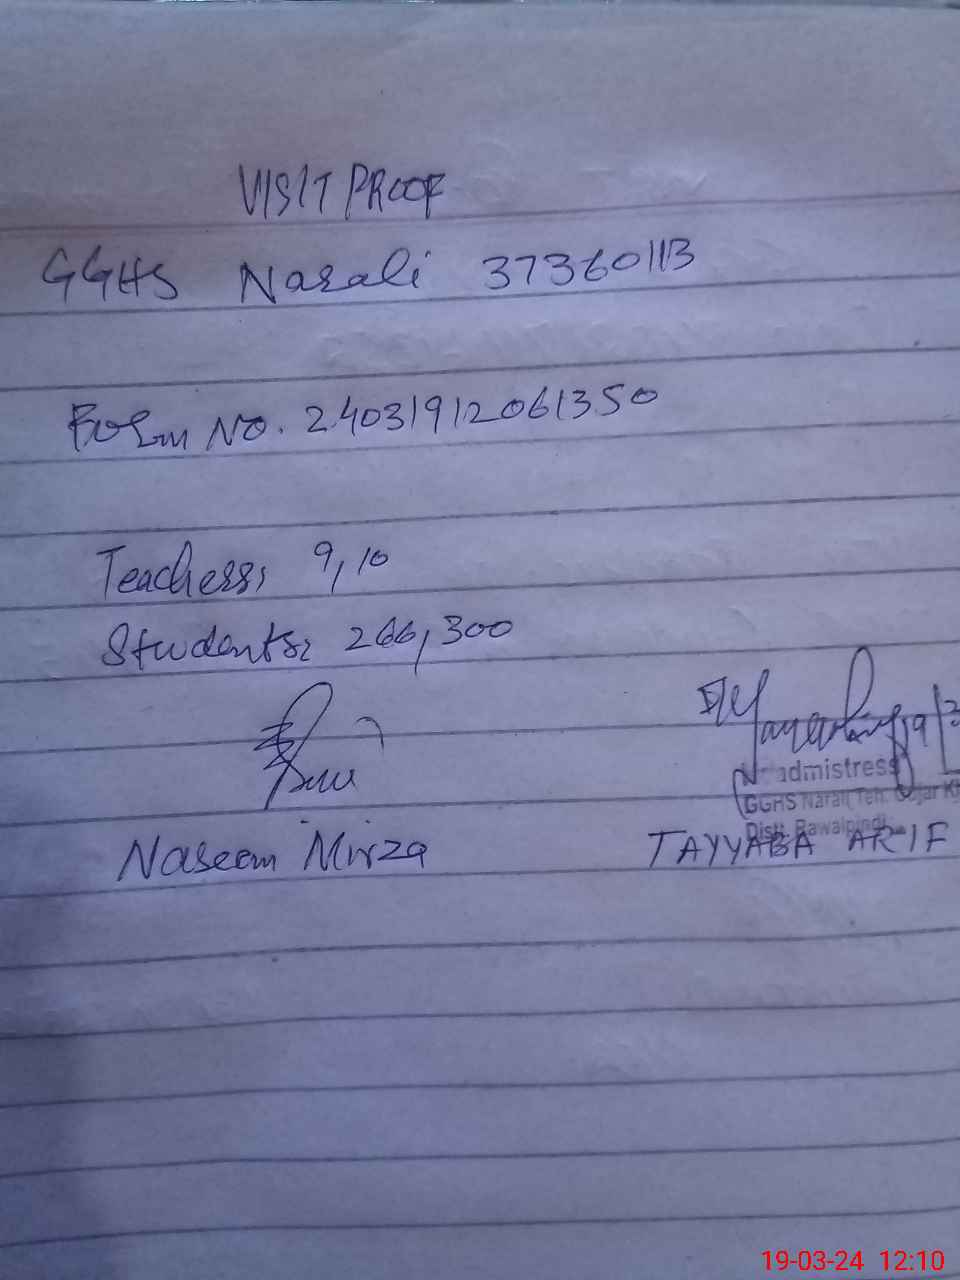 VISIT PROOF
GGHS Narali 37360113
Form No. 24031912061350
Teachers: 9, 10
Students: 266, 300
19/3
admistress
GGHS Narali Teh. Gujar Kh
Distt. Rawalpindi
Naseem Mirza TAYYABA ARIF
19-03-24 12:10